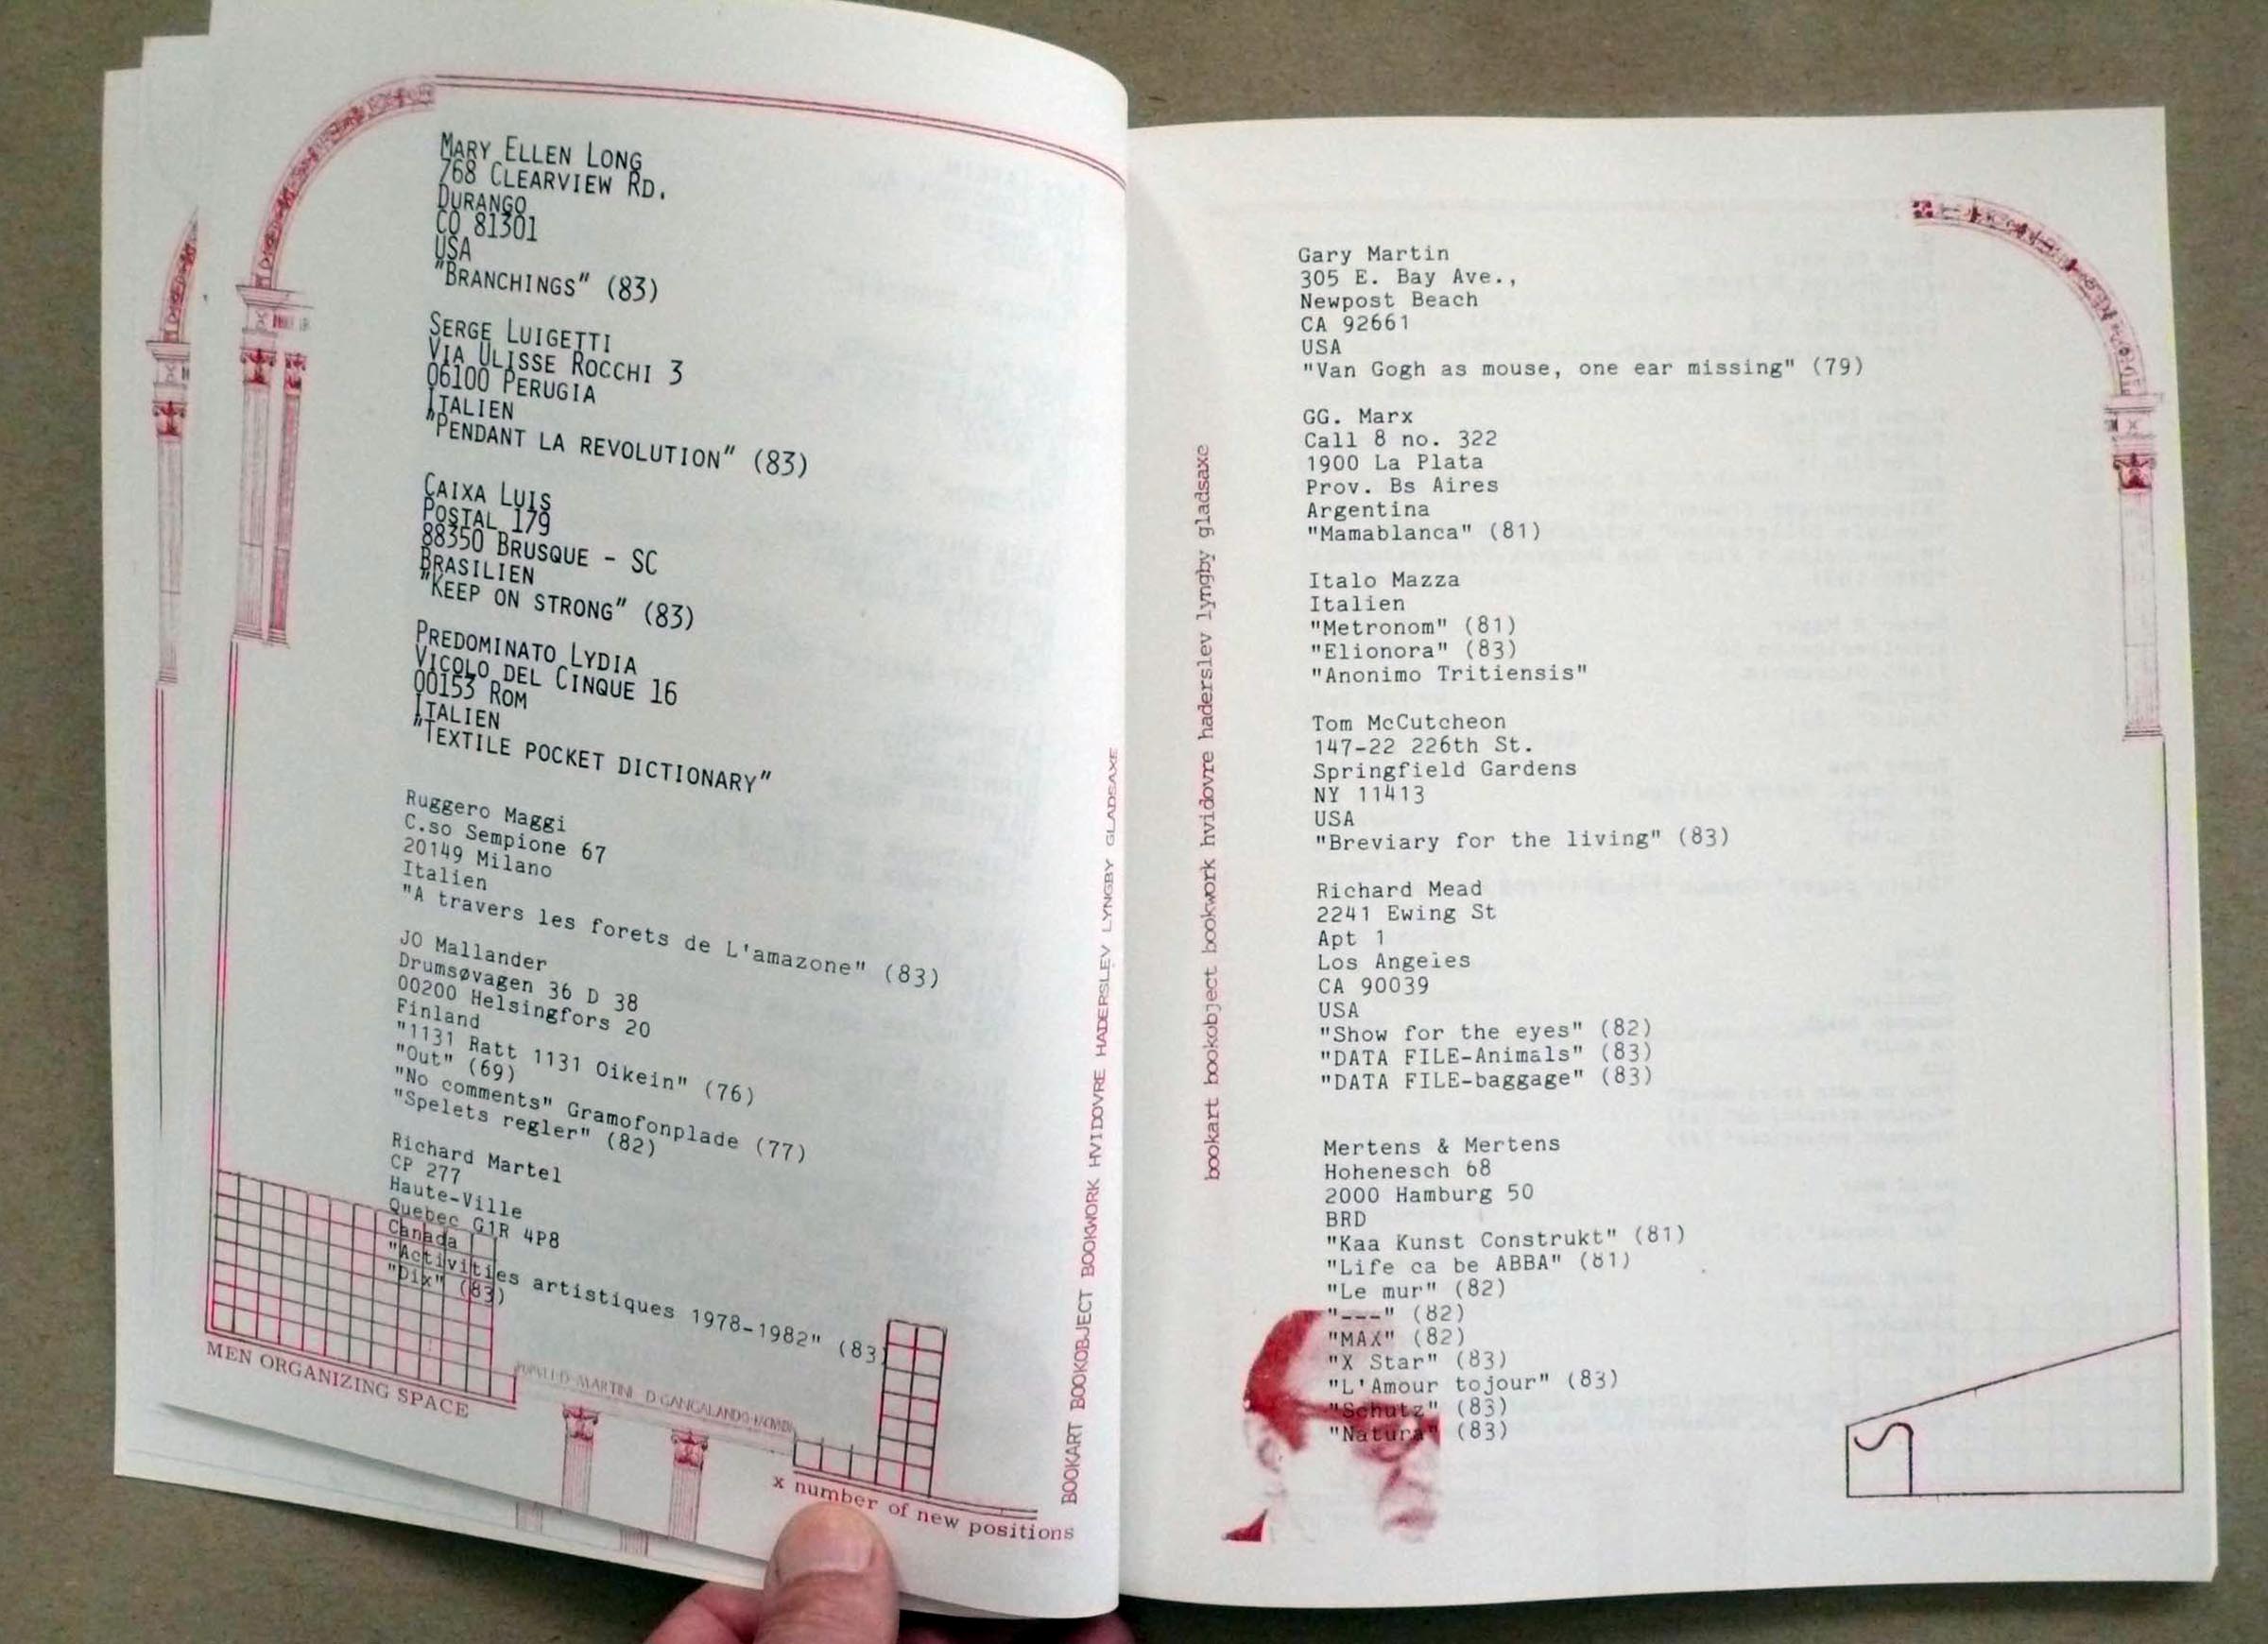 MARY ELLEN LONG
768 CLEARVIEW RD.
DURANGO
CO 81301
USA
"BRANCHINGS" (83)
SERGE LUIGETTI
VIA ULISSE ROCCHI 3
06100 PERUGIA
ITALIEN
"PENDANT LA REVOLUTION" (83)
CAIXA LUIS
POSTAL 179
88350 BRUSQUE - SC
BRASILIEN
"KEEP ON STRONG" (83)
PREDOMINATO LYDIA
VICOLO DEL CINQUE 16
00153 ROM
ITALIEN
"TEXTILE POCKET DICTIONARY"
Ruggero Maggi
C.so Sempione 67
20149 Milano
Italien
"A travers les forets de L'amazone" (83)
JO Mallander
Drumsøvagen 36 D 38
00200 Helsingfors 20
Finland
"1131 Ratt 1131 Oikein" (76)
"Out" (69)
"No comments" Gramofonplade (77)
"Spelets regler" (82)
Richard Martel
CP 277
Haute-Ville
Quebec G1R 4P8
Canada
"Activities artistiques 1978-1982" (83)
"Dix" (83)
MEN ORGANIZING SPACE
MARTINI D GANGALANDO
x number of new positions
BOOKART BOOKOBJECT BOOKWORK HVIDOVRE HADERSLEV LYNGBY GLADSAXE
bookart bookobject bookwork hvidovre haderslev lyngby gladsaxe
Gary Martin
305 E. Bay Ave.,
Newpost Beach
CA 92661
USA
"Van Gogh as mouse, one ear missing" (79)
GG. Marx
Call 8 no. 322
1900 La Plata
Prov. Bs Aires
Argentina
"Mamablanca" (81)
Italo Mazza
Italien
"Metronom" (81)
"Elionora" (83)
"Anonimo Tritiensis"
Tom McCutcheon
147-22 226th St.
Springfield Gardens
NY 11413
USA
"Breviary for the living" (83)
Richard Mead
2241 Ewing St
Apt 1
Los Angeles
CA 90039
USA
"Show for the eyes" (82)
"DATA FILE-Animals" (83)
"DATA FILE-baggage" (83)
Mertens & Mertens
Hohenesch 68
2000 Hamburg 50
BRD
"Kaa Kunst Construkt" (81)
"Life ca be ABBA" (81)
"Le mur" (82)
"---" (82)
"MAX" (82)
"X Star" (83)
"L'Amour tojour" (83)
"Schutz" (83)
"Natura" (83)